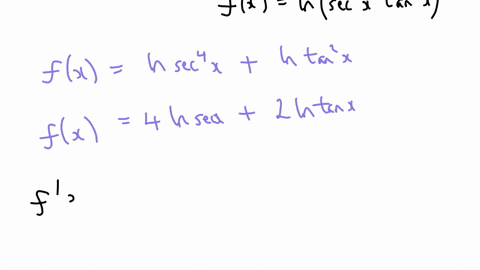 f(x) = ln(sec x tan x)
f(x) = ln sec⁴x + ln tan²x
f(x) = 4 ln secx + 2 ln tan x
f'